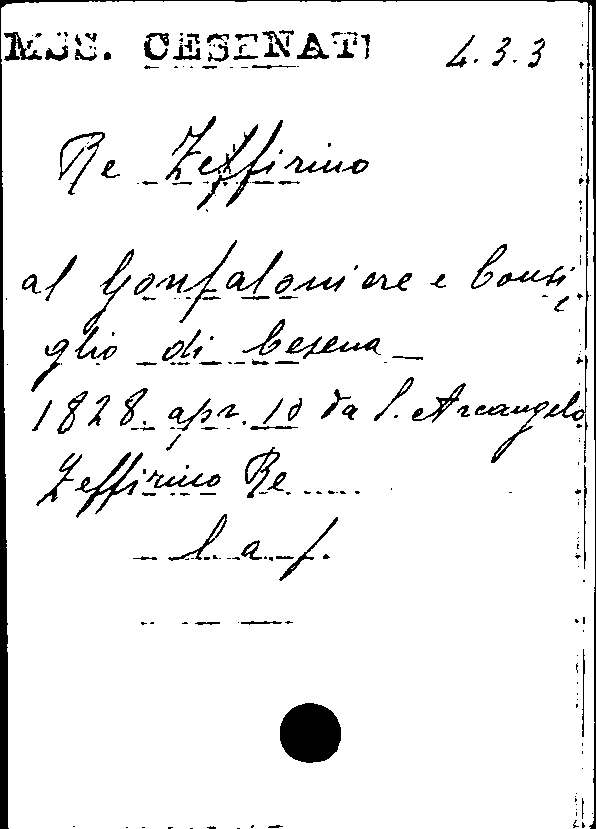 MSS. CESENATI 4.3.3
Re Zeffirino
al Gonfaloniere e Consi
glio di Cesena
1828. apr. 10 da S. Arcangelo
Zeffirino Re .....
l. a. f.